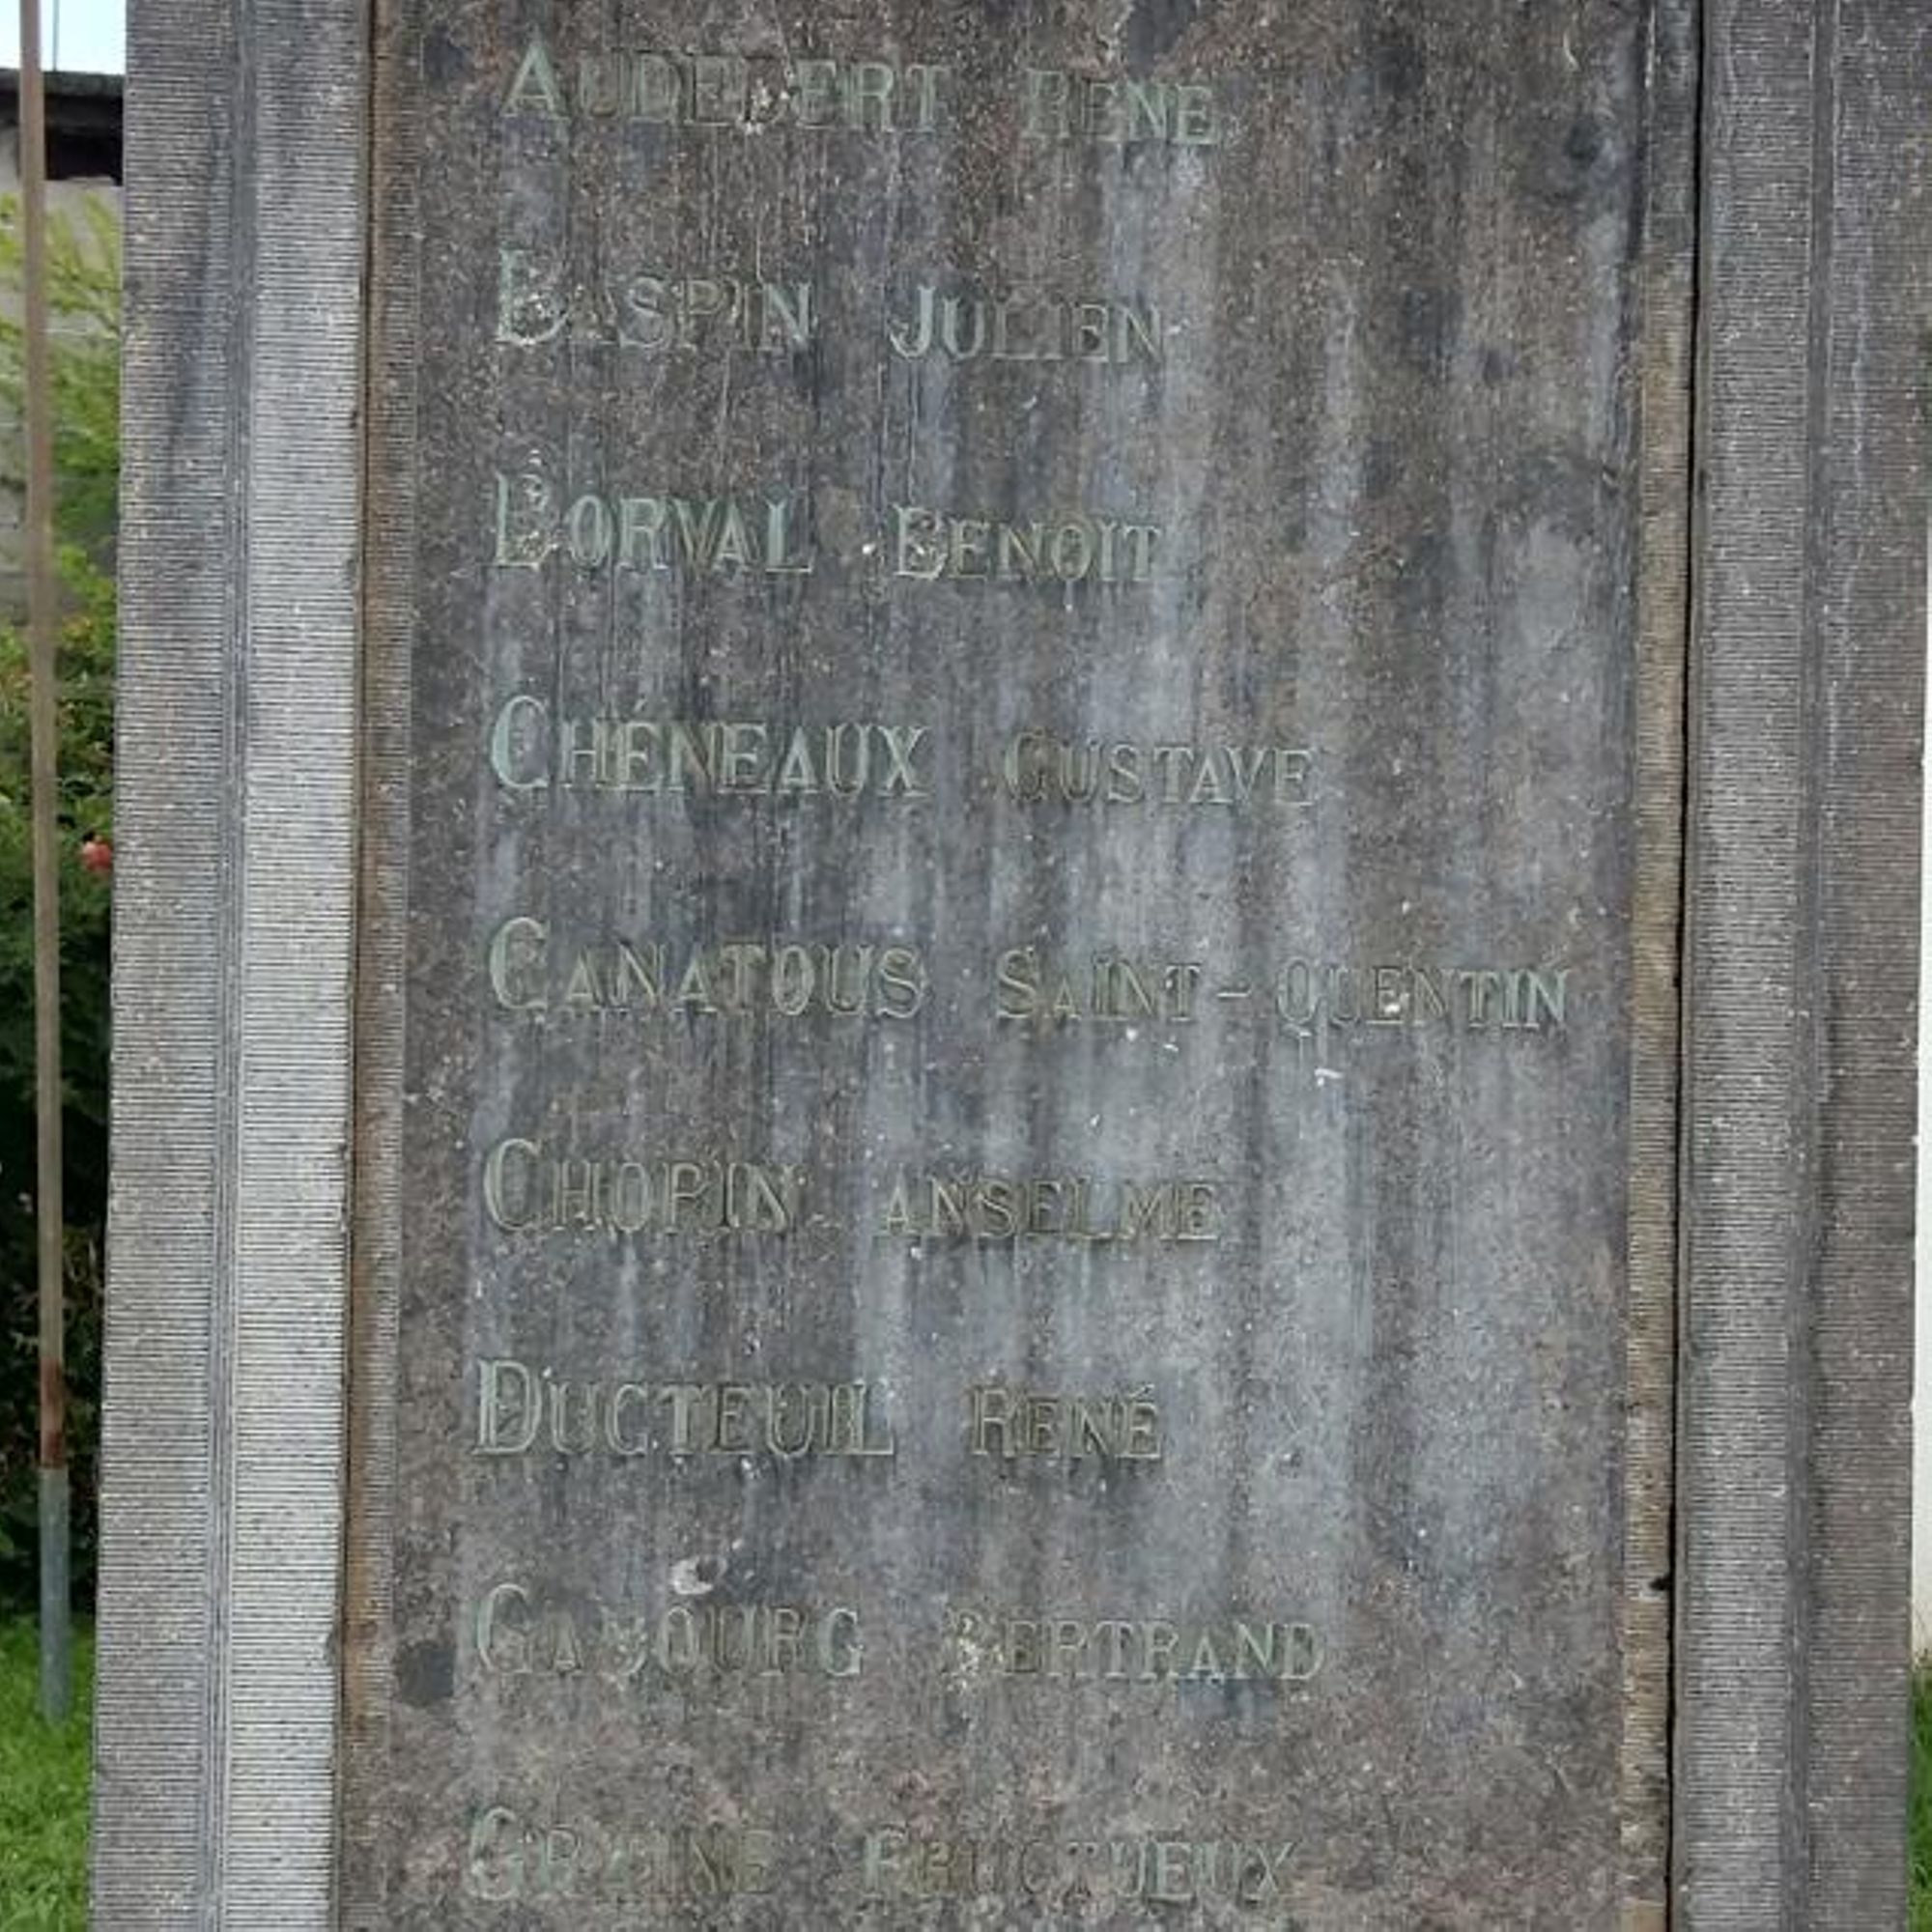 AUDEBERT RENÉ
BASPIN JULIEN
BORVAL BENOIT
CHÉNEAUX GUSTAVE
CANATOUS SAINT-QUENTIN
CHOPIN ANSELME
DUCTEUIL RENÉ
BERTRAND
FRUCTUEUX